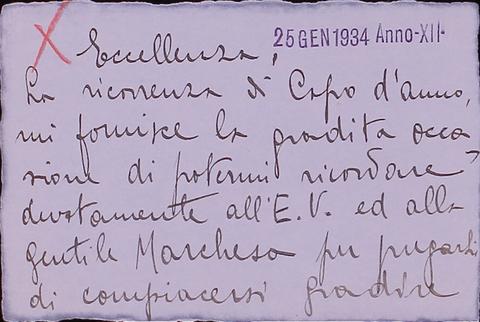 Eccellenza,
25 GEN 1934 Anno-XII-
La ricorrenza di Capo d'anno,
mi fornisce la gradita occa
sione di potermi ricordare
devotamente all'E.V. ed alla
gentile Marchesa per pregarLi
di compiacersi gradire